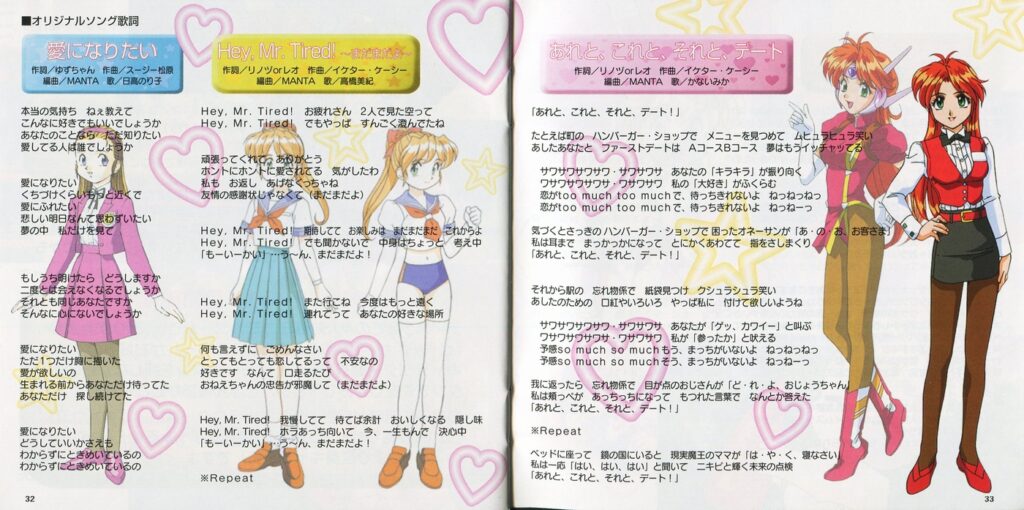 ■オリジナルソング歌詞
愛になりたい
作詞／ゆずちゃん 作曲／スージー松原
編曲／MANTA 歌／日高のり子
本当の気持ち ねぇ教えて
こんなに好きでもいいでしょうか
あなたのことなら ただ知りたい
愛してる人は誰でしょうか
愛になりたい
くちづけくらいもっと近くで
愛にふれたい
悲しい明日なんて思わずいたい
夢の中 私だけを見て
もしうち明けたら どうしますか
二度とは会えなくなるでしょうか
それとも同じあなたですか
そんなに心にないでしょうか
愛になりたい
ただ1つだけ胸に描いた
愛が欲しいの
生まれる前からあなただけ待ってた
あなただけ 探し続けてた
愛になりたい
どうしていいかさえも
わからずにときめいているの
わからずにときめいているの
32
Hey, Mr. Tired! ～まだまだよ～
作詞／リノヅorレオ 作曲／イケター・ケーシー
編曲／MANTA 歌／高橋美紀
Hey, Mr. Tired! お疲れさん 2人で見た空って
Hey, Mr. Tired! でもやっぱ すんごく澄んでたね
頑張ってくれて ありがとう
ホントにホントに愛されてる 気がしたわ
私も お返し あげなくっちゃね
友情の感謝状じゃなくて（まだまだよ）
Hey, Mr. Tired! 期待してて お楽しみは まだまだまだ これからよ
Hey, Mr. Tired! でも聞かないで 中身はちょっと 考え中
「もーいーかい」…う～ん、まだまだよ！
Hey, Mr. Tired! また行こね 今度はもっと遠く
Hey, Mr. Tired! 連れてって あなたの好きな場所
何も言えずに ごめんなさい
とってもとっても恋してるって 不安なの
好きです なんて 口走るたび
おねえちゃんの忠告が邪魔して（まだまだよ）
Hey, Mr. Tired! 我慢してて 待てば余計 おいしくなる 隠し味
Hey, Mr. Tired! ホラあっち向いて 今、一生もんで 決心中
「もーいーかい」…う～ん、まだまだよ！
※Repeat
あれと、これと、それと、デート
作詞／リノヅorレオ 作曲／イケター・ケーシー
編曲／MANTA 歌／かないみか
「あれと、これと、それと、デート！」
たとえば町の ハンバーガー・ショップで メニューを見つめて ムヒュラヒュラ笑い
あしたあなたと ファーストデートは AコースBコース 夢はもうイッチャッてる
サワサワサワサワ・サワサワサ あなたの「キラキラ」が振り向く
ワサワサワサワサ・ワサワサワ 私の「大好き」がふくらむ
恋がtoo much too muchで、待っちきれないよ ねっねっねっ
恋がtoo much too muchで、待っちきれないよ ねっねーっ
気づくとさっきの ハンバーガー・ショップで 困ったオネーサンが「あ・の・お、お客さま」
私は耳まで まっかっかになって とにかくあわてて 指をさしまくり
「あれと、これと、それと、デート！」
それから駅の 忘れ物係で 紙袋見つけ クシュラシュラ笑い
あしたのための 口紅やいろいろ やっぱ私に 付けて欲しいようね
サワサワサワサワ・サワサワサ あなたが「ゲッ、カワイー」と叫ぶ
ワサワサワサワサ・ワサワサワ 私が「参ったか」と吠える
予感so much so muchそう、まっちがいないよ ねっねっねっ
予感so much so muchそう、まっちがいないよ ねっねーっ
我に返ったら 忘れ物係で 目が点のおじさんが「ど・れ・よ、おじょうちゃん」
私は頬っぺが あっちっちになって もつれた言葉で なんとか答えた
「あれと、これと、それと、デート！」
※Repeat
ベッドに座って 鏡の国にいると 現実魔王のママが「は・や・く、寝なさい」
私は一応「はい、はい、はい」と聞いて ニキビと輝く未来の点検
「あれと、これと、それと、デート！」
33